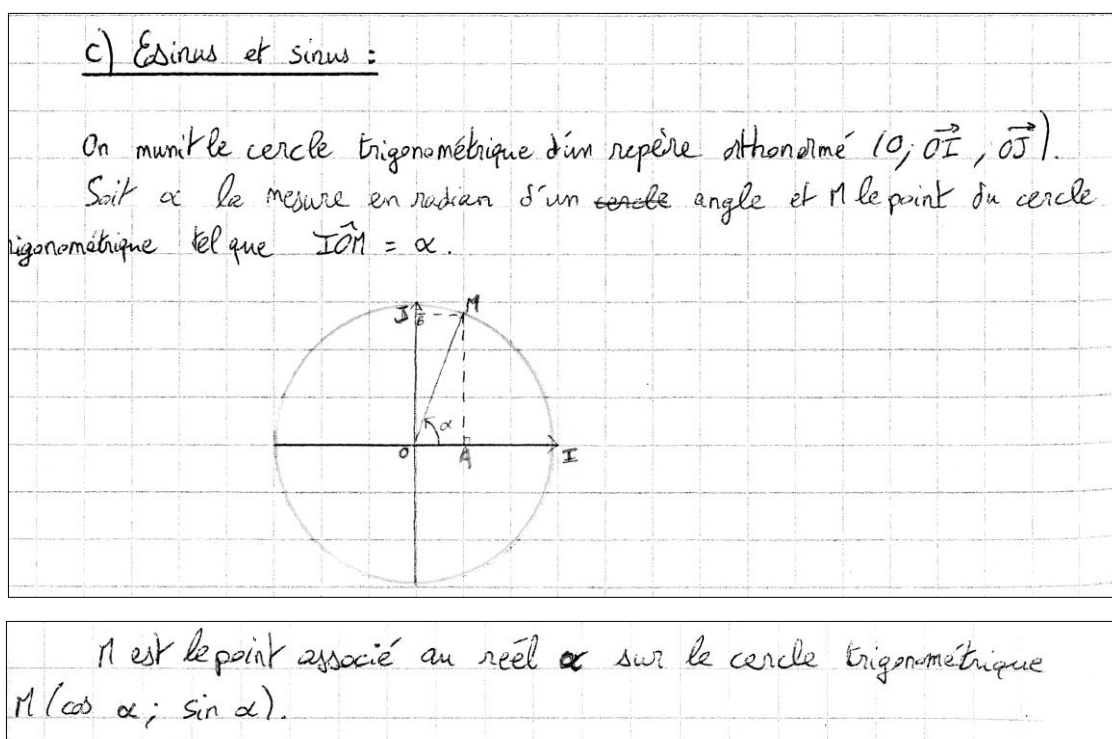 c) Cosinus et sinus :
On munit le cercle trigonométrique d'un repère orthonormé (O; OI⃗, OJ⃗).
Soit α la mesure en radian d'un cercle angle et M le point du cercle
rigonométrique tel que IÔM = α.
J B M
α
O A I
M est le point associé au réel α sur le cercle trigonométrique
M (cos α ; sin α).